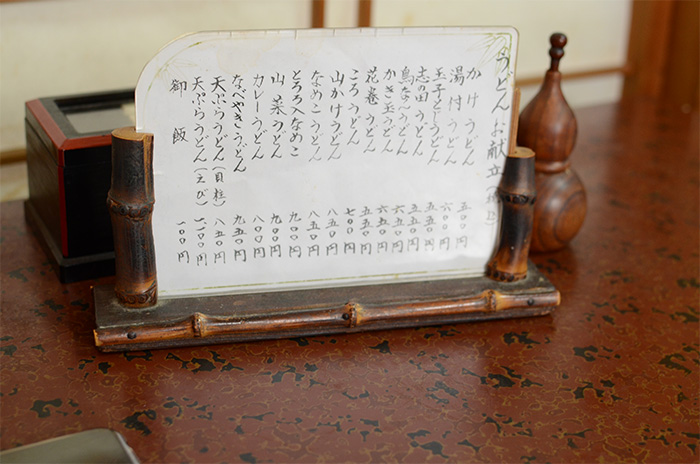 うどんお献立
かけうどん 五〇〇円
湯付うどん 六〇〇円
玉子とじうどん 五五〇円
志の田うどん 五五〇円
鳥なんうどん 六五〇円
かき玉うどん 六五〇円
花巻うどん 五五〇円
ころうどん 七〇〇円
山かけうどん 八五〇円
なめこうどん 八五〇円
とろろ入なめこ 九〇〇円
山菜うどん 八〇〇円
カレーうどん 八〇〇円
なべやきうどん 九五〇円
天ぷらうどん(貝柱) 八五〇円
天ぷらうどん(えび) 一、一〇〇円
御飯 一〇〇円